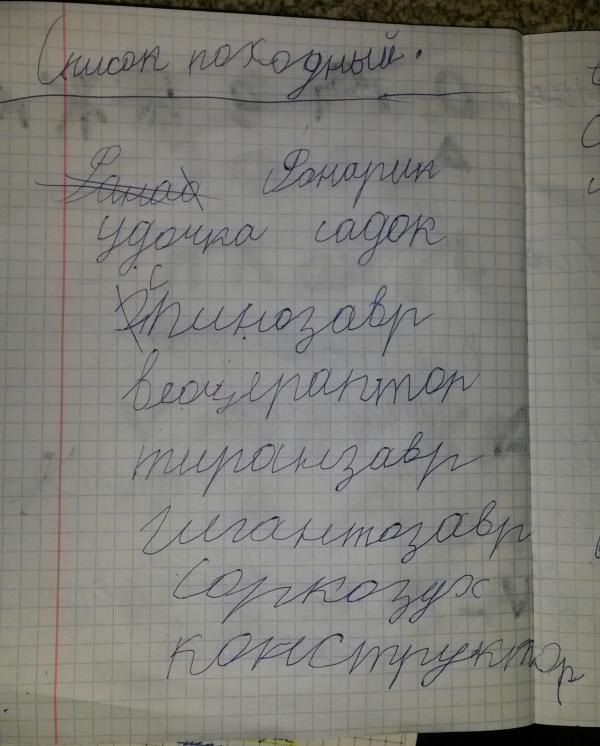 Список походный.
Фонарик
Удочка садок
Спинозавр
веоцераптор
тиранзавр
Гигантозавр
Саркозух
конструктор